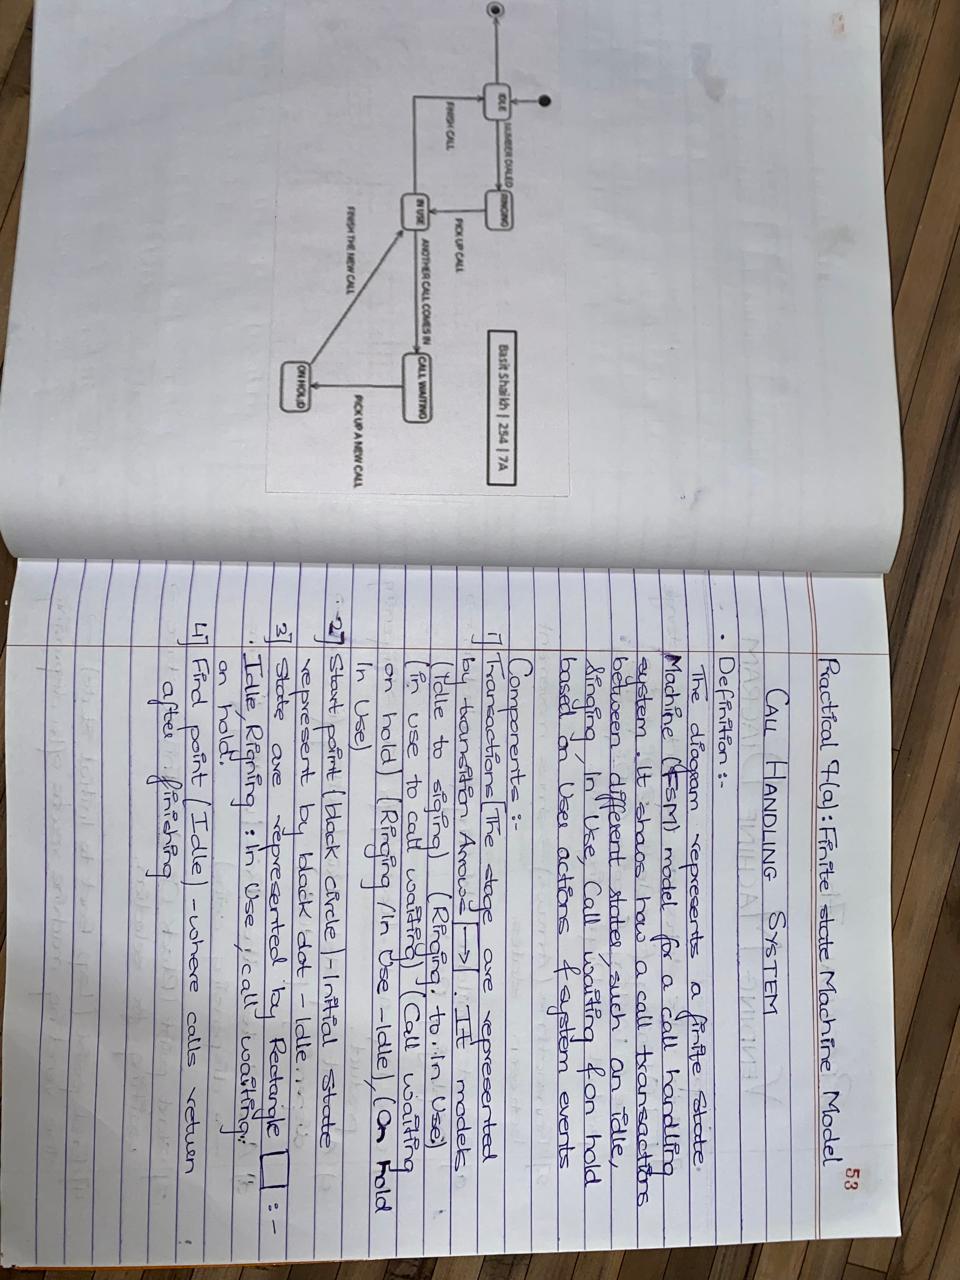 Basit Shaikh | 254 | 7A
IDLE
NUMBER DIALED
RINGING
FINISH CALL
PICK UP CALL
IN USE
ANOTHER CALL COMES IN
CALL WAITING
FINISH THE NEW CALL
PICK UP A NEW CALL
ON HOLD
53
Practical 9(a): Finite state Machine Model
CALL HANDLING SYSTEM
• Definition :-
The diagram represents a finite state
Machine (FSM) model for a call handling
system. It shows how a call transactions
between different states, such an idle,
Singing, In Use, Call waiting & on hold
based on User actions & system events
Components :-
1] Transactions [The stage are represented
by transition Arrows [→]. It models
(Idle to siging) (Ringing. to. In Use)
(in use to call waiting) (Call waiting
on hold) (Ringing /In Use - Idle), (On Hold
In Use)
2] Start point (black circle) - Initial State
represent by black dot - Idle
3] State are represented by Rectangle :-
Idle, Rigning : In Use, call waiting,
on hold.
4] Find point (Idle) - where calls return
after finishing